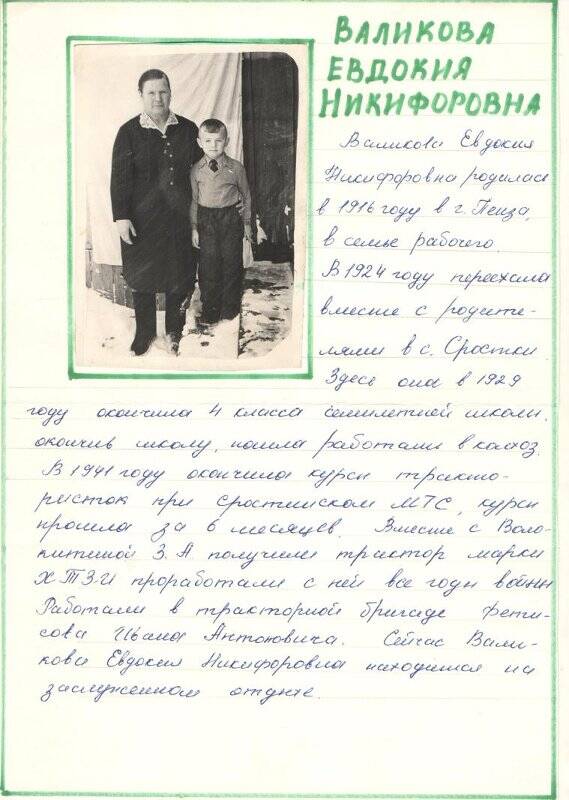 ВАЛИКОВА
ЕВДОКИЯ
НИКИФОРОВНА
Валикова Евдокия
Никифоровна родилась
в 1916 году в г. Пенза,
в семье рабочего.
В 1924 году переехала
вместе с родите-
лями в с. Сростки.
Здесь она в 1929
году окончила 4 класса семилетней школы.
окончив школу, пошла работать в колхоз.
В 1941 году окончила курсы тракто-
ристок при Сростинском МТС, курсы
прошла за 6 месяцев. Вместе с Воло-
китиной З.А получили трактор марки
ХТЗ.И проработали с ней все годы войны
Работали в тракторной бригаде Фети-
сова Ивана Антоновича. Сейчас Вали-
кова Евдокия Никифоровна находится на
заслуженном отдыхе.